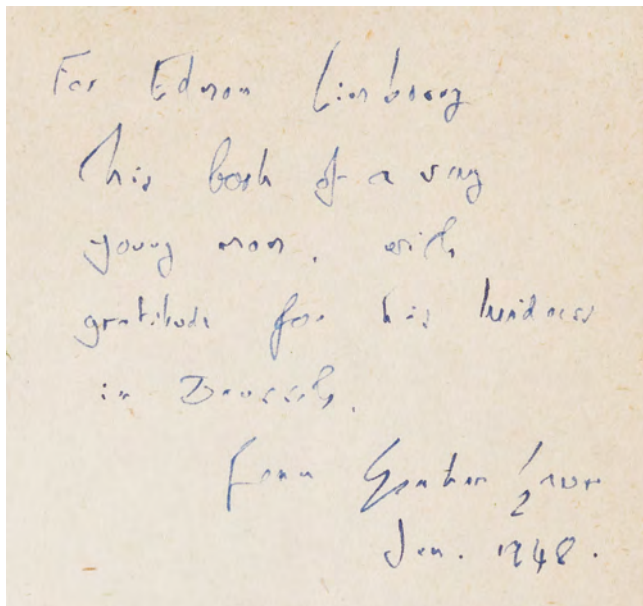 For Edmon Limbourg
this book of a very
young man, with
gratitude for his kindness
in Brussels.
from Graham Greene
Jan. 1948.